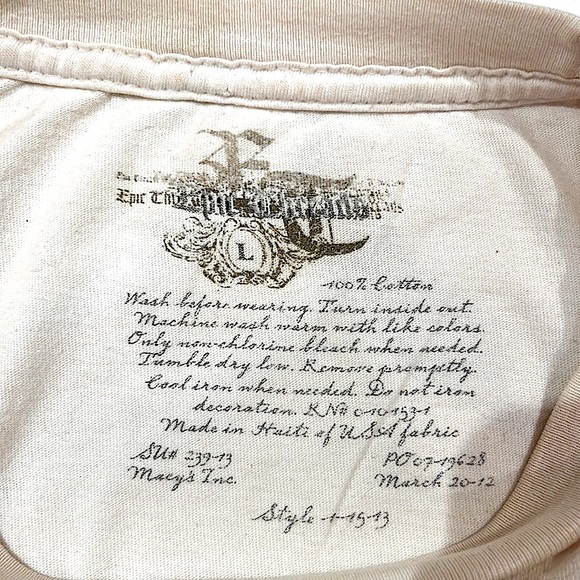 Epic Threads
L
100% Cotton
Wash before wearing. Turn inside out.
Machine wash warm with like colors.
Only non-chlorine bleach when needed.
Tumble dry low. Remove promptly.
Cool iron when needed. Do not iron
decoration. RN# 0-10-153-1
Made in Haiti of USA fabric
SU# 239-13
PO 07-19628
Macy's Inc.
March 20-12
Style -1-15-13